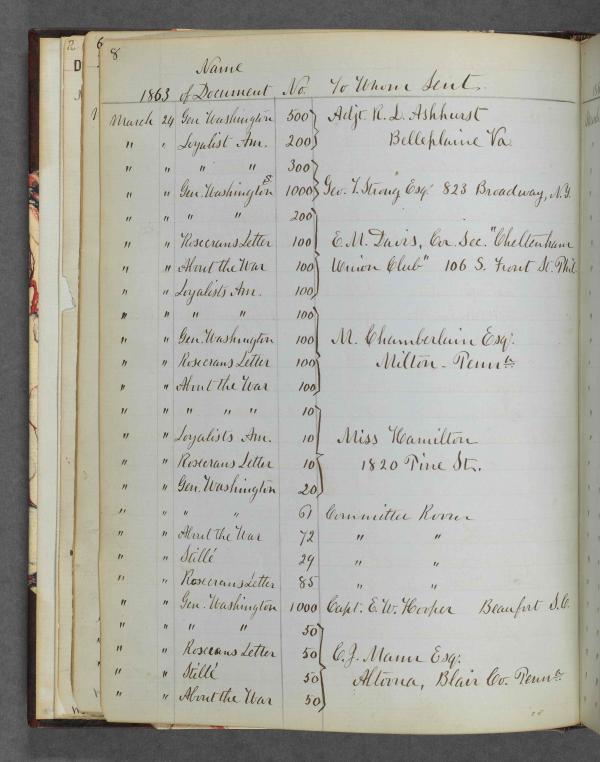 8
Name
1863 of Document No. To Whom Sent.
March 24 Gen Washington 500 Adjt. R. L. Ashhurst
" " Loyalist Am. 200 Belleplaine Va
" " " " 300
" " Gen. Washington's 1000 Geo. T. Strong Esq. 823 Broadway, N.Y.
" " " " 200
" " Rosecrans Letter 100 E. M. Davis, Cor. Sec. "Cheltenham
" " About the War 100 Union Club" 106 S. Front St. Phil.
" " Loyalists Am. 100
" " " " 100
" " Gen. Washington 100 M. Chamberlain Esq.
" " Rosecrans Letter 100 Milton - Penna
" " About the War 100
" " " " " 10
" " Loyalists Am. 10 Miss Hamilton
" " Rosecrans Letter 10 1820 Pine St.
" " Gen. Washington 20
" " " " 61 Committee Room
" " About the War 72 " "
" " Stillé 29 " "
" " Rosecrans Letter 85 " "
" " Gen. Washington 1000 Capt. E. W. Hooper Beaufort S.C.
" " " " 50
" " Rosecrans Letter 50 C. J. Mann Esq.
" " Stillé 50 Altoona, Blair Co. Penna
" " About the War 50